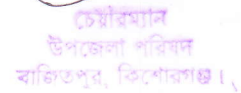 চেয়ারম্যান
উপজেলা পরিষদ
বাজিতপুর, কিশোরগঞ্জ।